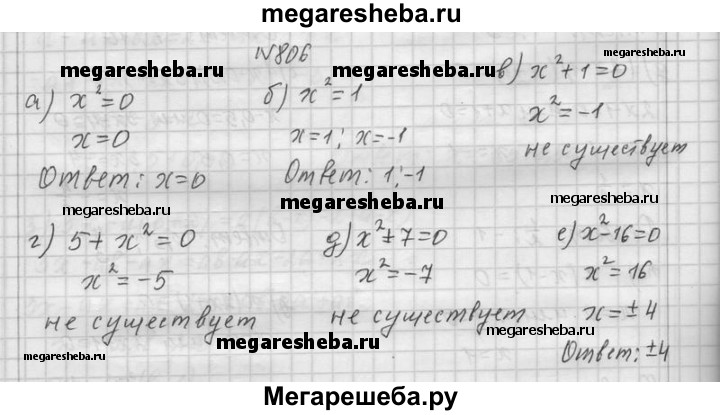 megaresheba.ru
№806
megaresheba.ru
megaresheba.ru
megaresheba.ru
а) x²=0
x=0
Ответ: x=0
б) x²=1
x=1; x=-1
Ответ: 1;-1
в) x²+1=0
x²=-1
не существует
megaresheba.ru
megaresheba.ru
megaresheba.ru
г) 5+x²=0
x²=-5
не существует
д) x²+7=0
x²=-7
не существует
е) x²-16=0
x²=16
x=±4
Ответ: ±4
megaresheba.ru
megaresheba.ru
megaresheba.ru
megaresheba.ru
Мегарешеба.ру